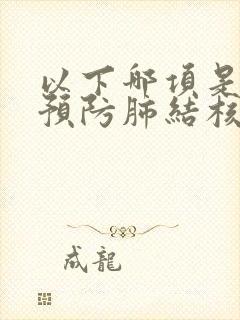 以下哪項是
預防肺結核
成龍